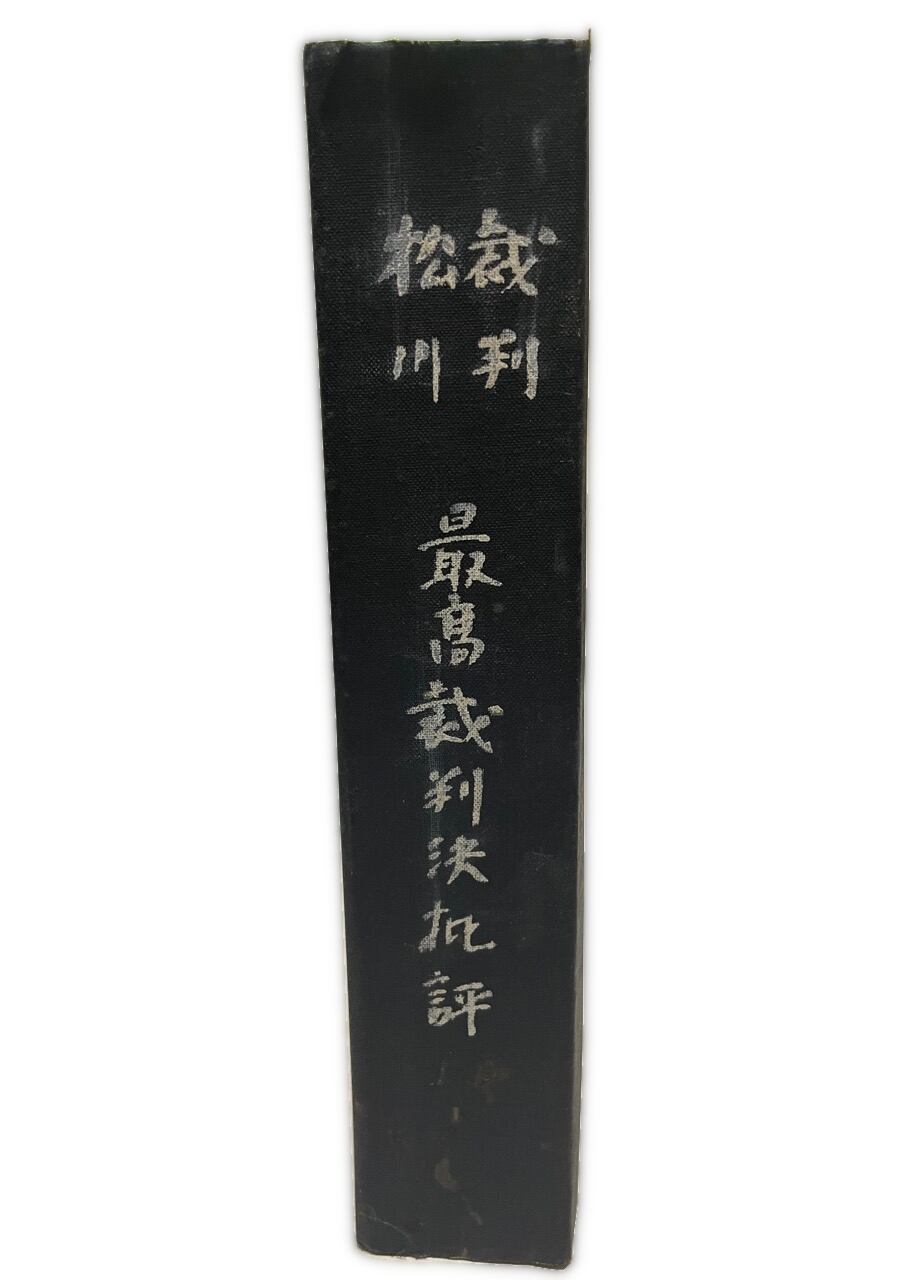 裁判
松川
最高裁判決批評